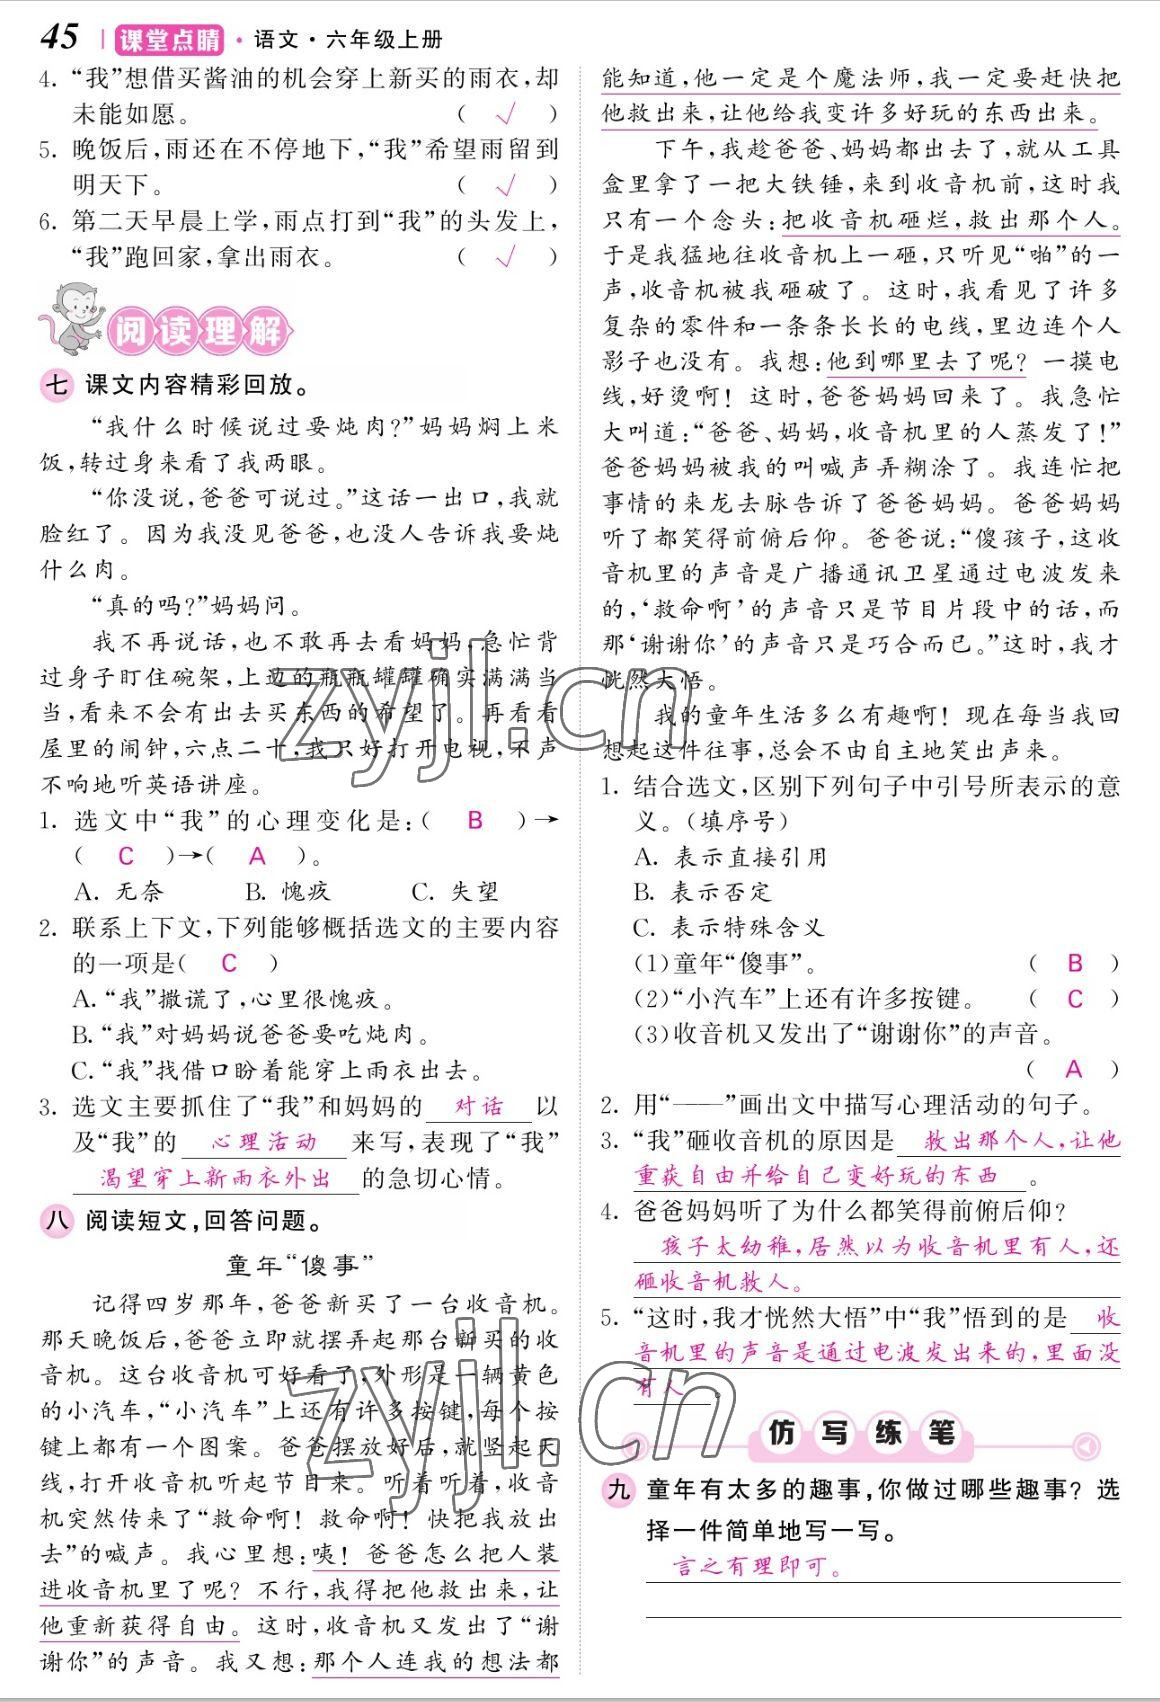 45 课堂点睛·语文·六年级上册
4. “我”想借买酱油的机会穿上新买的雨衣,却
未能如愿。 ( √ )
5. 晚饭后,雨还在不停地下,“我”希望雨留到
明天下。 ( √ )
6. 第二天早晨上学,雨点打到“我”的头发上,
“我”跑回家,拿出雨衣。 ( √ )
阅读理解
七 课文内容精彩回放。
“我什么时候说过要炖肉?”妈妈焖上米
饭,转过身来看了我两眼。
“你没说,爸爸可说过。”这话一出口,我就
脸红了。因为我没见爸爸,也没人告诉我要炖
什么肉。
“真的吗?”妈妈问。
我不再说话,也不敢再去看妈妈,急忙背
过身子盯住碗架,上边的瓶瓶罐罐确实满满当
当,看来不会有出去买东西的希望了。再看看
屋里的闹钟,六点二十,我只好打开电视,不声
不响地听英语讲座。
1. 选文中“我”的心理变化是:( B )→
( C )→( A )。
A. 无奈 B. 愧疚 C. 失望
2. 联系上下文,下列能够概括选文的主要内容
的一项是( C )
A.“我”撒谎了,心里很愧疚。
B.“我”对妈妈说爸爸要吃炖肉。
C.“我”找借口盼着能穿上雨衣出去。
3. 选文主要抓住了“我”和妈妈的 对话 以
及“我”的 心理活动 来写,表现了“我”
渴望穿上新雨衣外出 的急切心情。
八 阅读短文,回答问题。
童年“傻事”
记得四岁那年,爸爸新买了一台收音机。
那天晚饭后,爸爸立即就摆弄起那台新买的收
音机。这台收音机可好看了,外形是一辆黄色
的小汽车,“小汽车”上还有许多按键,每个按
键上都有一个图案。爸爸摆放好后,就竖起天
线,打开收音机听起节目来。听着听着,收音
机突然传来了“救命啊!救命啊!快把我放出
去”的喊声。我心里想:咦!爸爸怎么把人装
进收音机里了呢?不行,我得把他救出来,让
他重新获得自由。这时,收音机又发出了“谢
谢你”的声音。我又想:那个人连我的想法都
能知道,他一定是个魔法师,我一定要赶快把
他救出来,让他给我变许多好玩的东西出来。
下午,我趁爸爸、妈妈都出去了,就从工具
盒里拿了一把大铁锤,来到收音机前,这时我
只有一个念头:把收音机砸烂,救出那个人。
于是我猛地往收音机上一砸,只听见“啪”的一
声,收音机被我砸破了。这时,我看见了许多
复杂的零件和一条条长长的电线,里边连个人
影子也没有。我想:他到哪里去了呢?一摸电
线,好烫啊!这时,爸爸妈妈回来了。我急忙
大叫道:“爸爸、妈妈,收音机里的人蒸发了!”
爸爸妈妈被我的叫喊声弄糊涂了。我连忙把
事情的来龙去脉告诉了爸爸妈妈。爸爸妈妈
听了都笑得前俯后仰。爸爸说:“傻孩子,这收
音机里的声音是广播通讯卫星通过电波发来
的,‘救命啊’的声音只是节目片段中的话,而
那‘谢谢你’的声音只是巧合而已。”这时,我才
恍然大悟。
我的童年生活多么有趣啊!现在每当我回
想起这件往事,总会不由自主地笑出声来。
1. 结合选文,区别下列句子中引号所表示的意
义。(填序号)
A. 表示直接引用
B. 表示否定
C. 表示特殊含义
(1)童年“傻事”。 ( B )
(2)“小汽车”上还有许多按键。 ( C )
(3)收音机又发出了“谢谢你”的声音。
( A )
2. 用“——”画出文中描写心理活动的句子。
3. “我”砸收音机的原因是 救出那个人,让他
重获自由并给自己变好玩的东西 。
4. 爸爸妈妈听了为什么都笑得前俯后仰?
孩子太幼稚,居然以为收音机里有人,还
砸收音机救人。
5. “这时,我才恍然大悟”中“我”悟到的是 收
音机里的声音是通过电波发出来的,里面没
有人 。
仿写练笔
九 童年有太多的趣事,你做过哪些趣事?选
择一件简单地写一写。
言之有理即可。
zyjl.cn
zyjl.cn